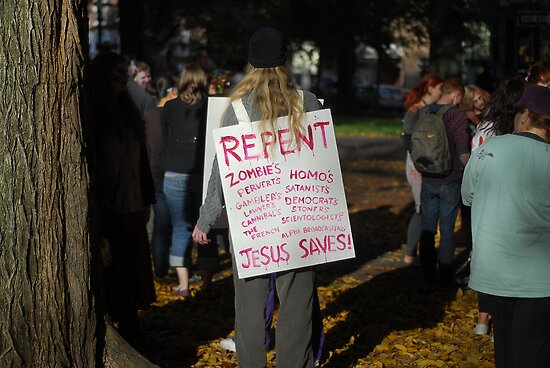 REPENT
ZOMBIE'S HOMO'S
PERVERTS SATANISTS
GAMBLER'S DEMOCRATS
LAWYER'S STONERS
CANNIBALS SCIENTOLOGISTS'
THE FRENCH ALPHA BROADCASTING
JESUS SAVES!